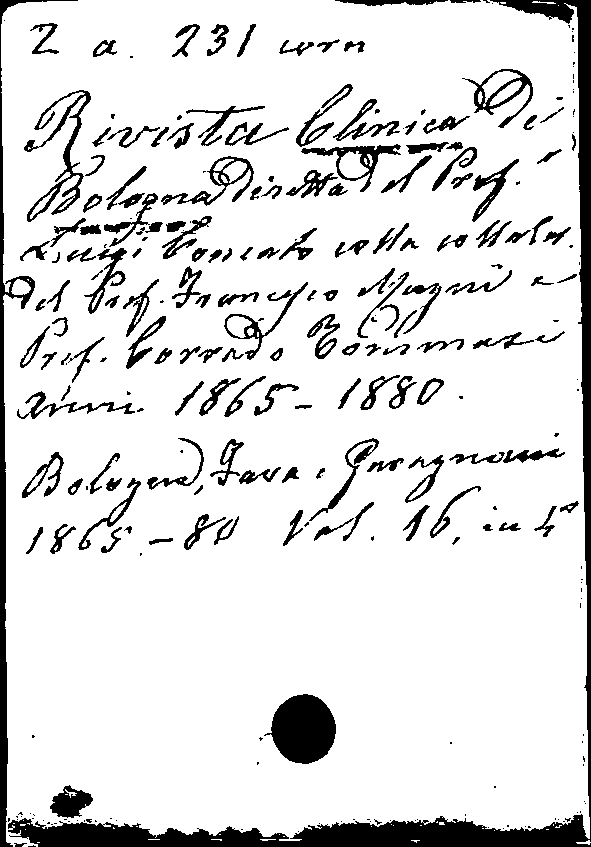 2 a. 231 corn
Rivista Clinica di
Bologna diretta dal Prof.r
Luigi Concato colla collabor.
del Prof. Francesco Magni e
Prof. Corrado Tommasi
anni 1865-1880.
Bologna, Fava e Garagnani
1865-80 Vol. 16, in 4°